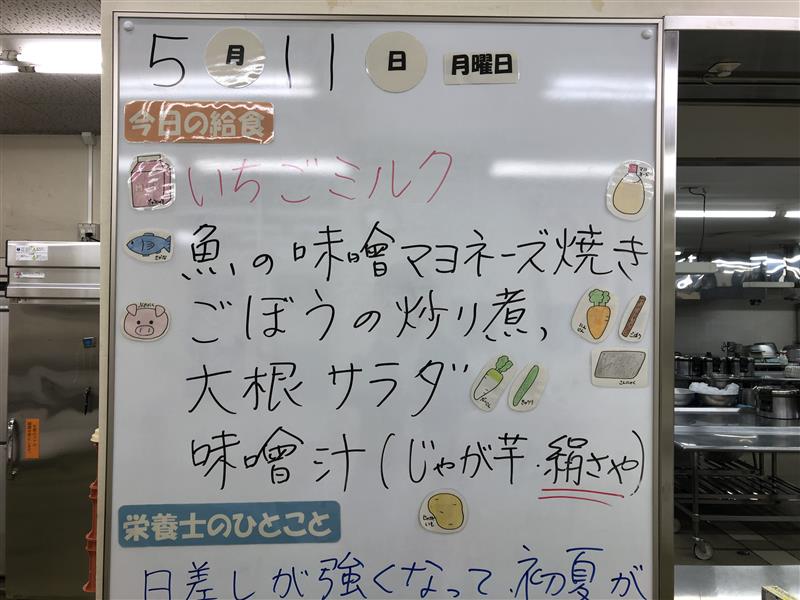 5月11日 月曜日
今日の給食
いちごミルク
魚の味噌マヨネーズ焼き
ごぼうの炒り煮
大根サラダ
味噌汁(じゃが芋・絹さや)
栄養士のひとこと
日差しが強くなって、初夏が